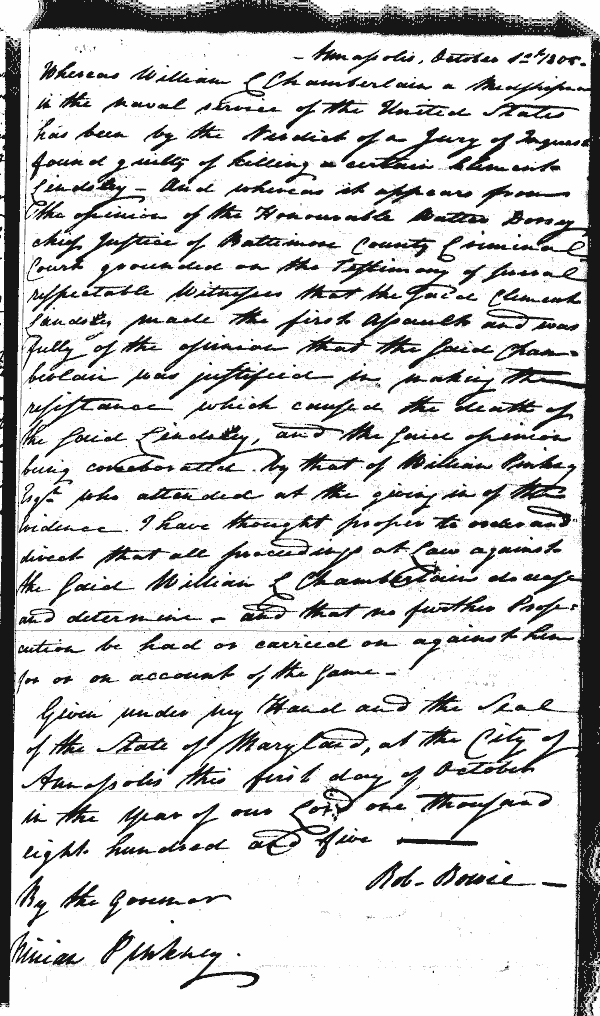 Annapolis, October 1st 1805.
Whereas William L Chamberlain a Midshipman
in the naval service of the United States
has been by the Verdict of a Jury of Inquest
found guilty of killing a certain Clement
Lindsley - And whereas it appears from
the opinion of the Honourable Walter Dorsey
chief Justice of Baltimore County Criminal
Court grounded on the Testimony of several
respectable Witnesses that the said Clement
Lindsley made the first Assault and was
fully of the opinion that the said Cham=
berlain was justified in making the
resistance which caused the death of
the said Lindsley, and the said opinion
being corroborated by that of William Pinkney
Esqr. who attended at the giving in of the
evidence. I have thought proper to order and
direct that all proceedings at Law against
the said William L Chamberlain do cease
and determine - and that no further Prose=
cution be had or carried on against him
for or on account of the same -
Given under my Hand and the Seal
of the State of Maryland, at the City of
Annapolis this first day of October
in the Year of our Lord one thousand
eight hundred and five
Rob. Bowie
By the Governor
Ninian Pinkney.